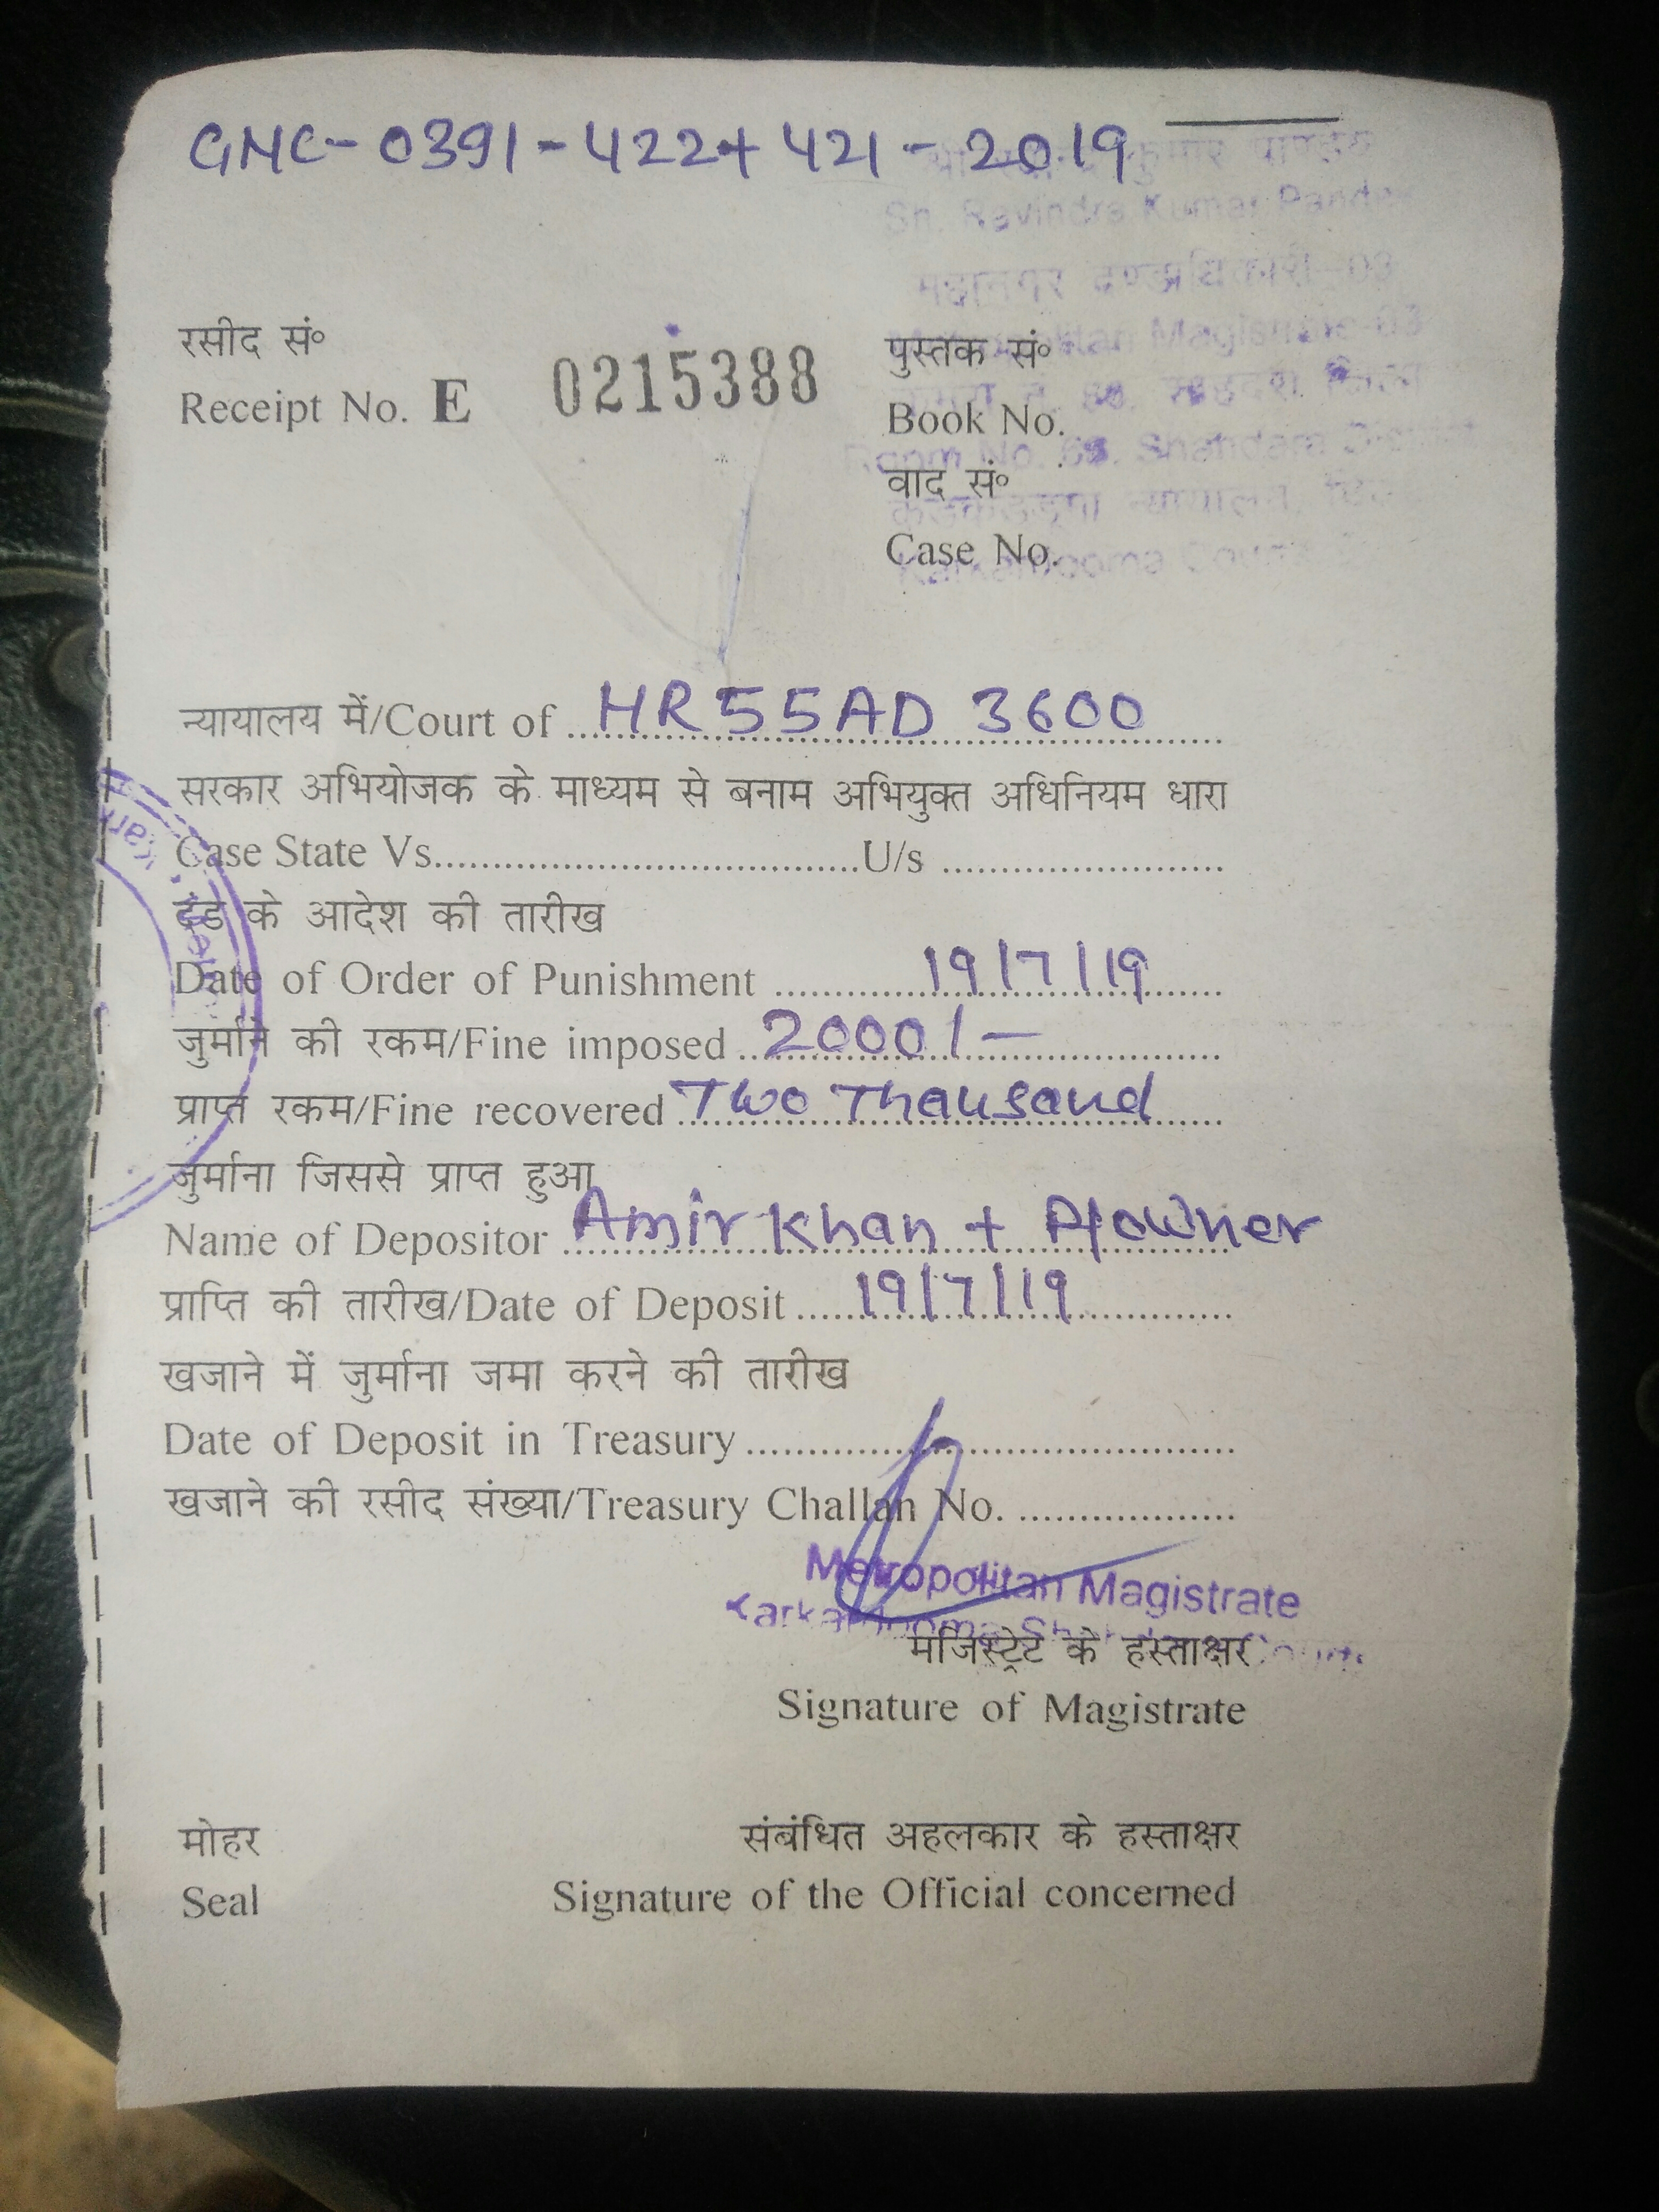 GNC-0391-422+421-2019
कुमार पाण्डेय
Sh. Ravindra Kumar Pandey
महानगर दण्डाधिकारी-03
Metropolitan Magistrate-03
रसीद सं०
Receipt No. E 0215388
पुस्तक सं०
Book No.
Room No. 66, Shahdara District
वाद सं०
न्यायालय,
Case No.
Karkardooma Courts
न्यायालय में/Court of HR55AD 3600
सरकार अभियोजक के माध्यम से बनाम अभियुक्त अधिनियम धारा
Case State Vs. U/s
दंड के आदेश की तारीख
Date of Order of Punishment 19/7/19
जुर्माने की रकम/Fine imposed 2000/-
प्राप्त रकम/Fine recovered Two Thausand
जुर्माना जिससे प्राप्त हुआ
Name of Depositor Amir Khan + P/owner
प्राप्ति की तारीख/Date of Deposit 19/7/19
खजाने में जुर्माना जमा करने की तारीख
Date of Deposit in Treasury
खजाने की रसीद संख्या/Treasury Challan No.
Metropolitan Magistrate
Karkardooma
मजिस्ट्रेट के हस्ताक्षर
Signature of Magistrate
मोहर
Seal
संबंधित अहलकार के हस्ताक्षर
Signature of the Official concerned